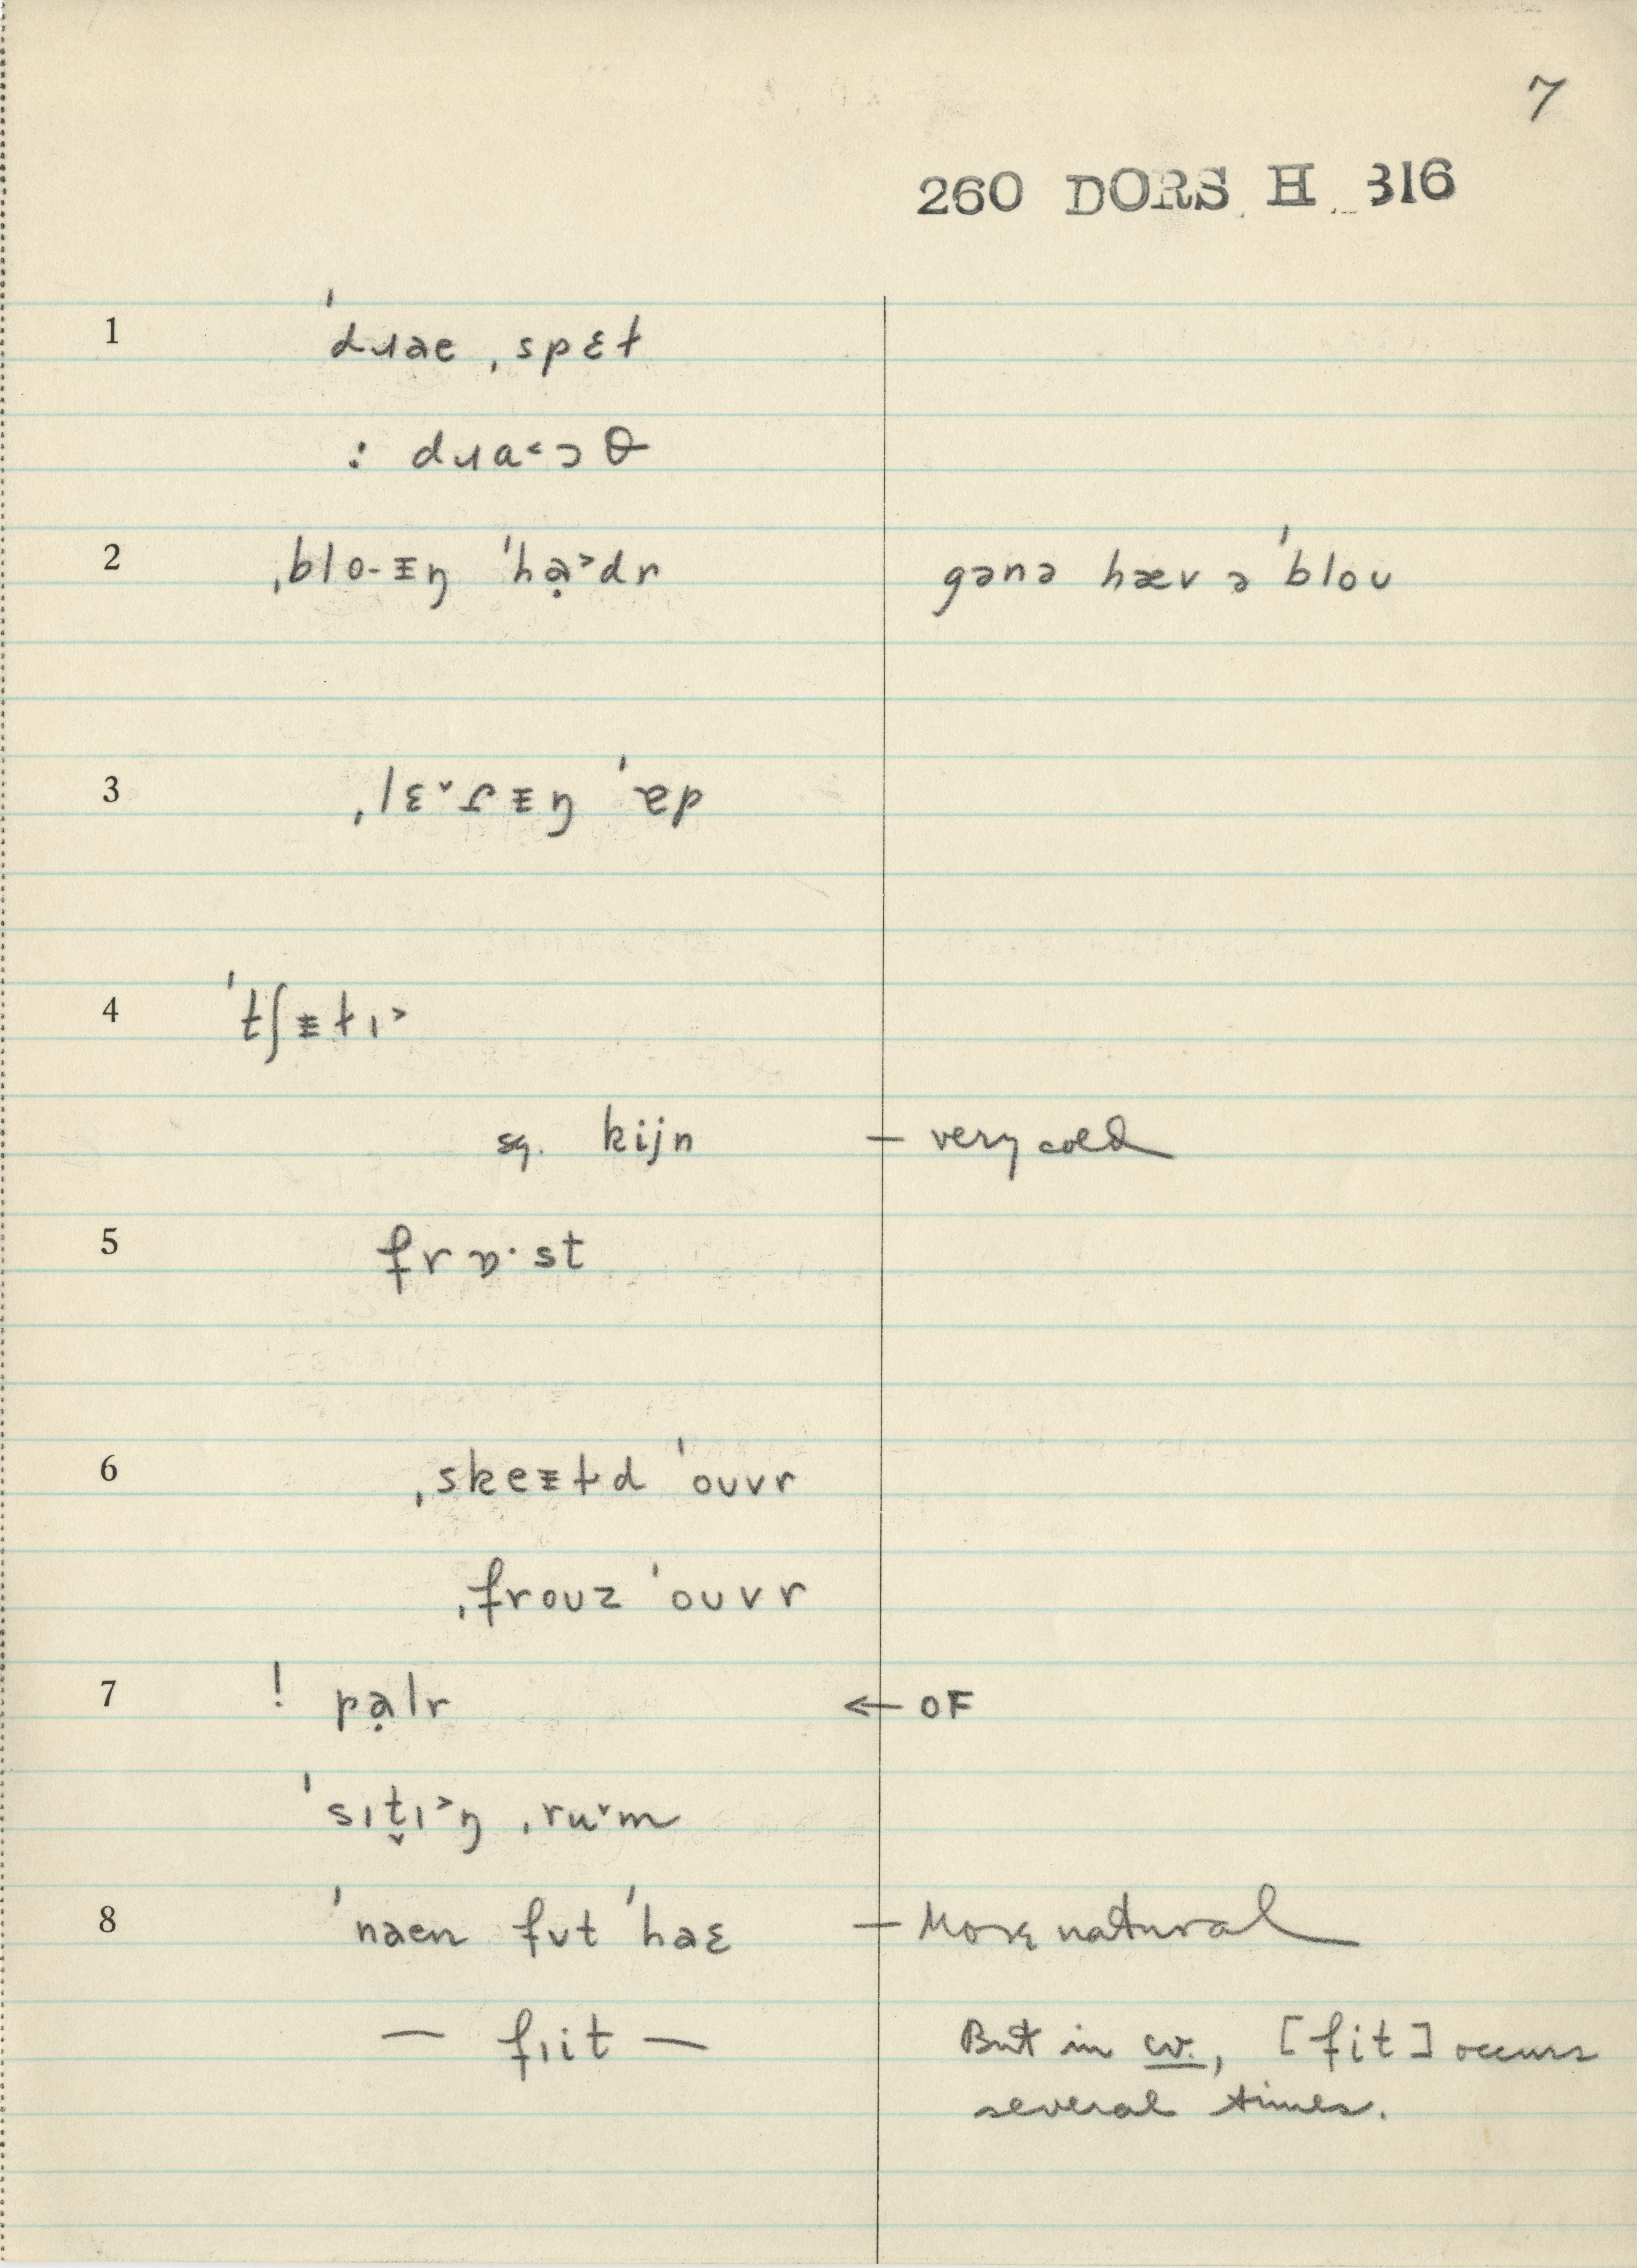 7
260 DORS H 316
1 ˈdɹae ˌspɛɫ
: dɹɑ˂ɔθ
2 ˌblo-ᵻŋ ˈhạ˃dr gənə hæv ə ˈbloʊ
3 ˌlɛˇſᵻŋ ˈɐp
4 ˈtʃᵻɫɪ˃
sq. kijn — very cold
5 frɒ·st
6 ˌskeᵻɫd ˈoʊvr
ˌfroʊz ˈoʊvr
7 ! pạlr ← OF
ˈsɪt̬ɪ˃ŋ ˌruˇm
8 ˈnaen fʊt ˈhaɛ — More natural
— fɪit — But in cv., [fit] occurs
several times.